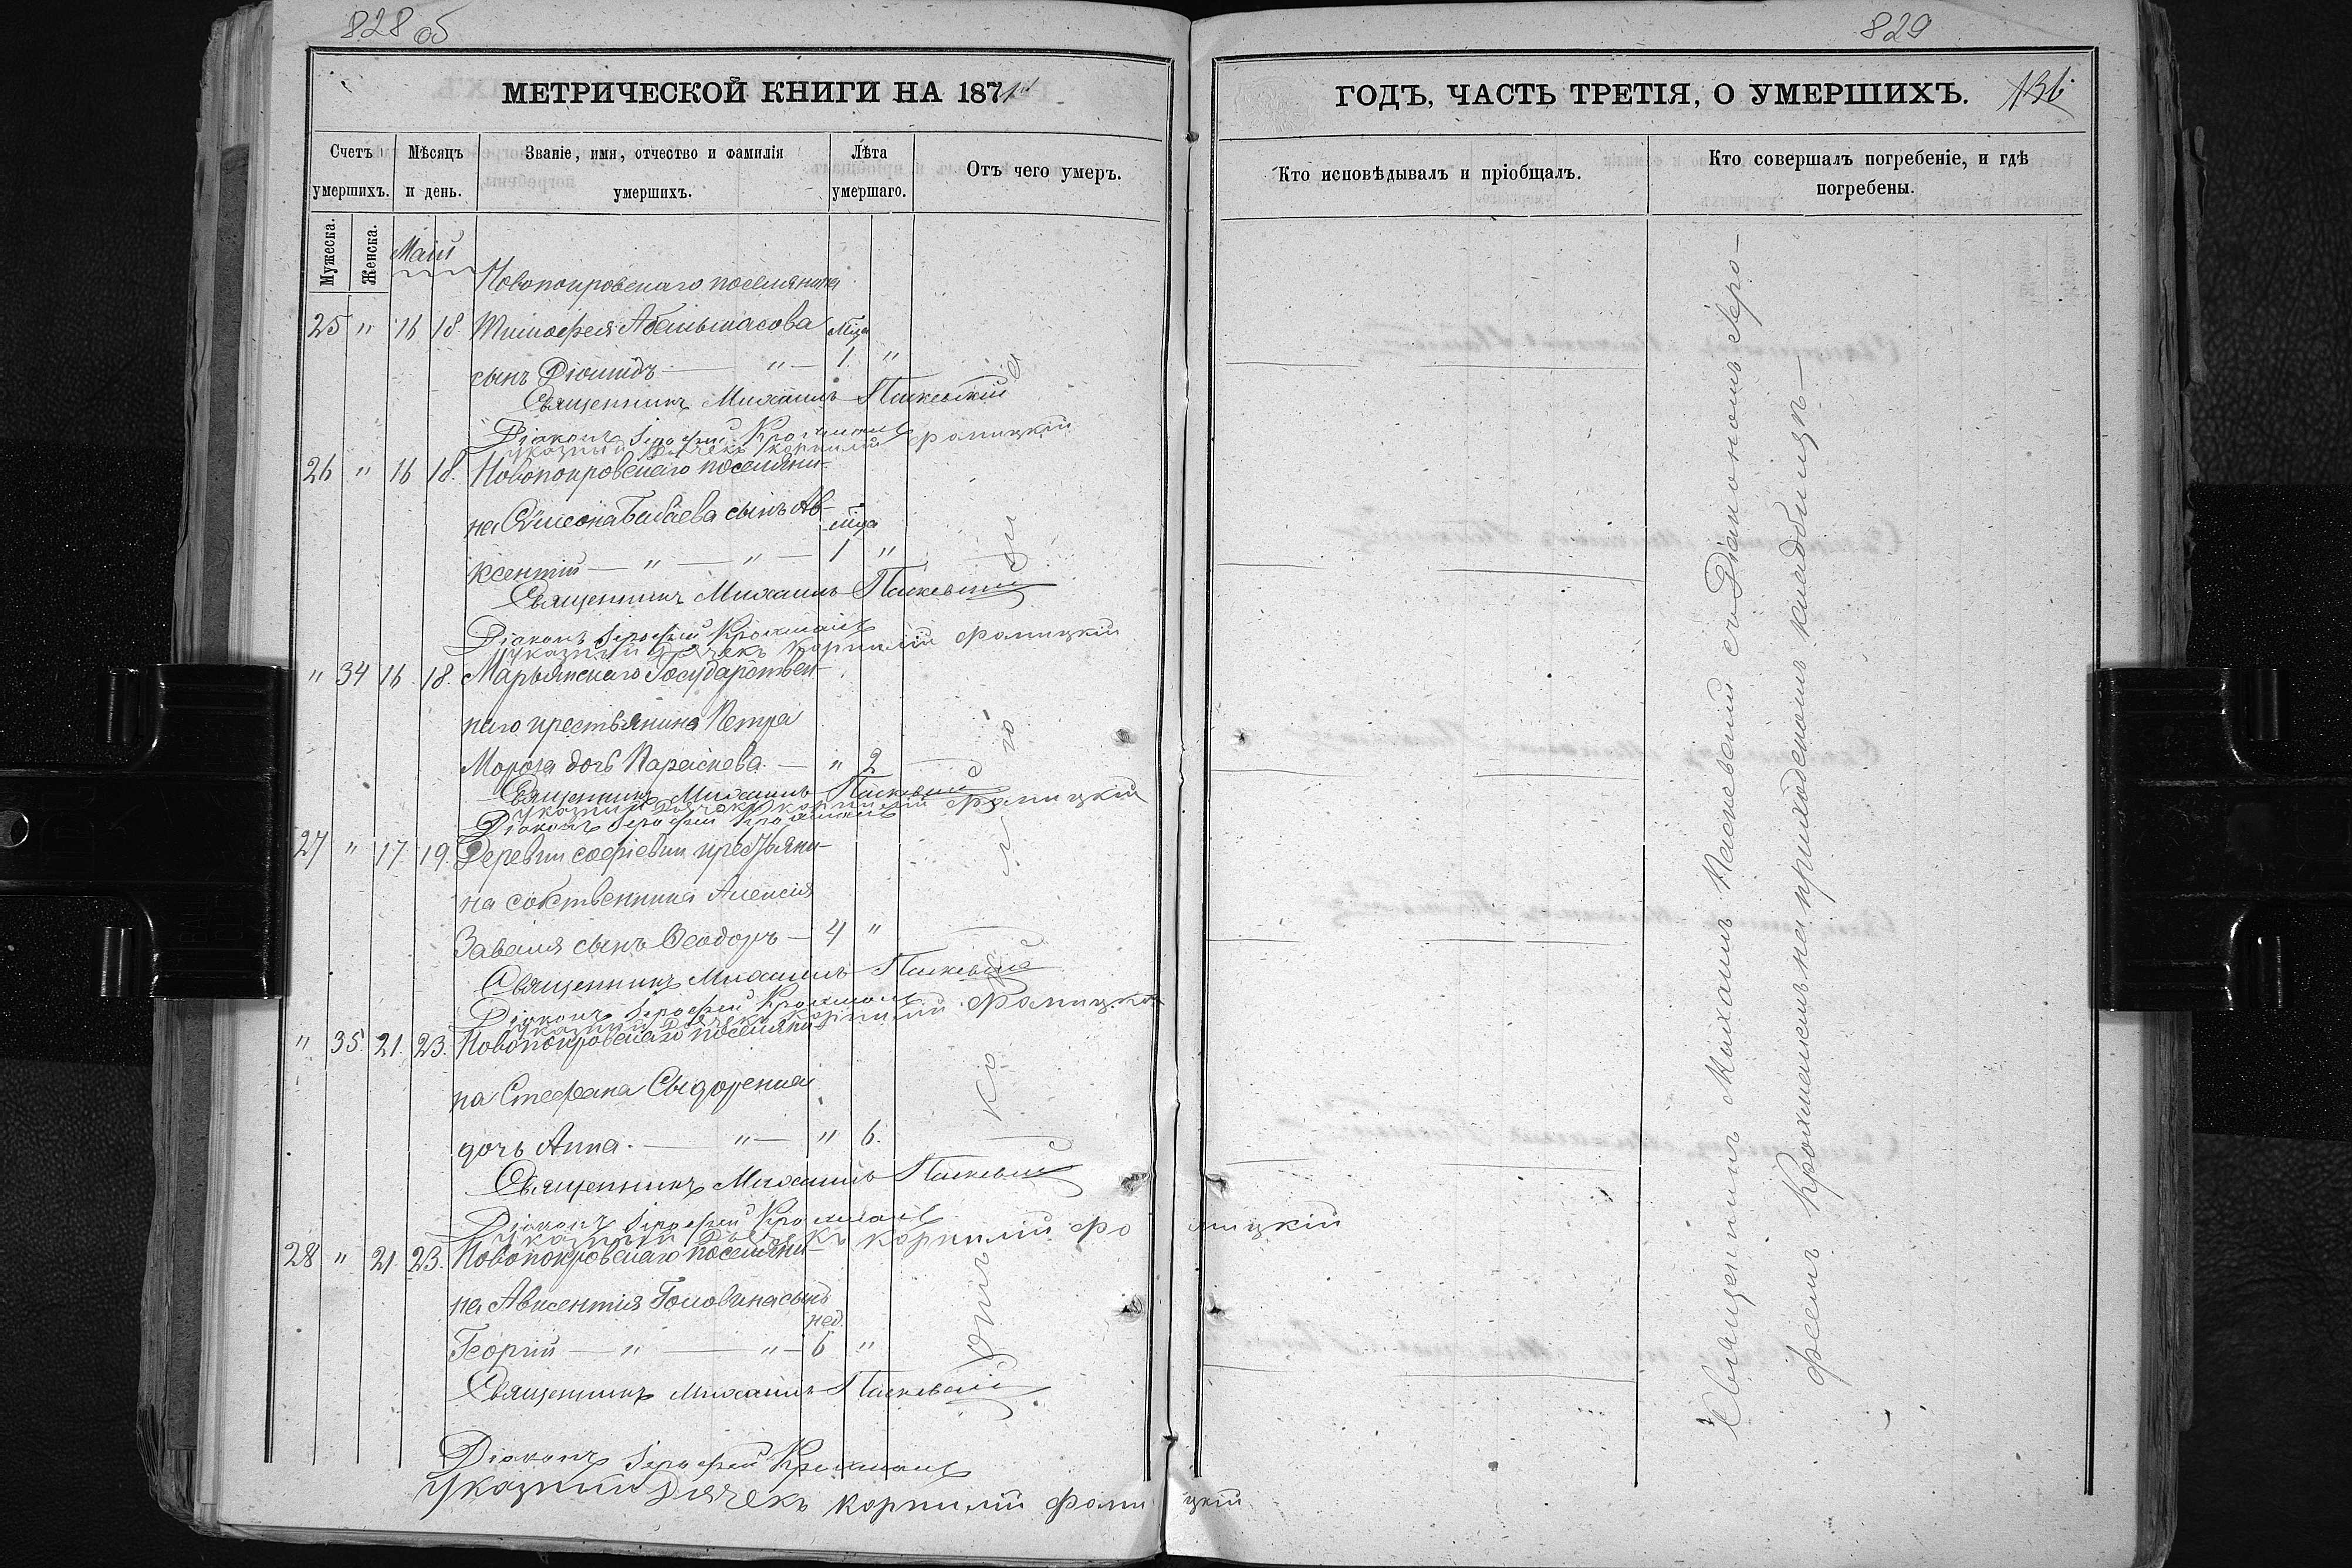 828 об
МЕТРИЧЕСКОЙ КНИГИ НА 1871й
Счетъ умершихъ.
Мѣсяцъ и день.
Званіе, имя, отчество и фамилія умершихъ.
Лѣта умершаго.
Отъ чего умеръ.
Мужеска.
Женска.
Май
Новопокровскаго поселянина
25 " 16 18. Тимофея сова мѣца
сынъ Діомидъ — " — 1. "
Священникъ Михаилъ Паскевскій
Діаконъ Іерофей Крохмаль
указный Дьячекъ корнилій фолицкій
26 " 16 18. Новопокровскаго поселяни-
на Сѵмеона Бабаева сынъ Ав- мѣца
ксентій — " — " — 1 "
Священникъ Михаилъ Паскевскій
Діаконъ Іерофей Крохмаль
указный Дьячекъ корнилій фолицкій
" 34 16 18. Марьянскаго Государствен-
наго крестьянина Петра
Мороза дочь Параскева — " 2
Священникъ Михаилъ Паскевскій
указный Дьячекъ корнилій фолицкій
Діаконъ Іерофей Крохмаль
27 " 17. 19. Деревни софіевки крестьяни-
на собственника Алексія
Заваля сынъ Ѳеодоръ — 4 "
Священникъ Михаилъ Паскевскій
Діаконъ Іерофей Крохмаль
указный Дьячекъ корнилій фолицкій
" 35. 21. 23. Новопокровскаго поселяни-
на Стефана Сыдоренка
дочь Анна. — " — " 6.
Священникъ Михаилъ Паскевскій
Діаконъ Іерофей Крохмаль
указный Дьячекъ корнилій фолицкій
28 " 21. 23. Новопокровскаго поселяни-
на Авксентія Головина сынъ
нед.
Георгій — " — " — 6 "
Священникъ Михаилъ Паскевскій
Діаконъ Іерофей Крохмаль
указный Дьячекъ корнилій фолицкій
829
ГОДЪ, ЧАСТЬ ТРЕТІЯ, О УМЕРШИХЪ.
136
Кто исповѣдывалъ и пріобщалъ.
Кто совершалъ погребеніе, и гдѣ погребены.
Священникъ Михаилъ Паскевскій съ Діакономъ Іеро-
феемъ Крохмалемъ на приходскомъ кладбищѣ —